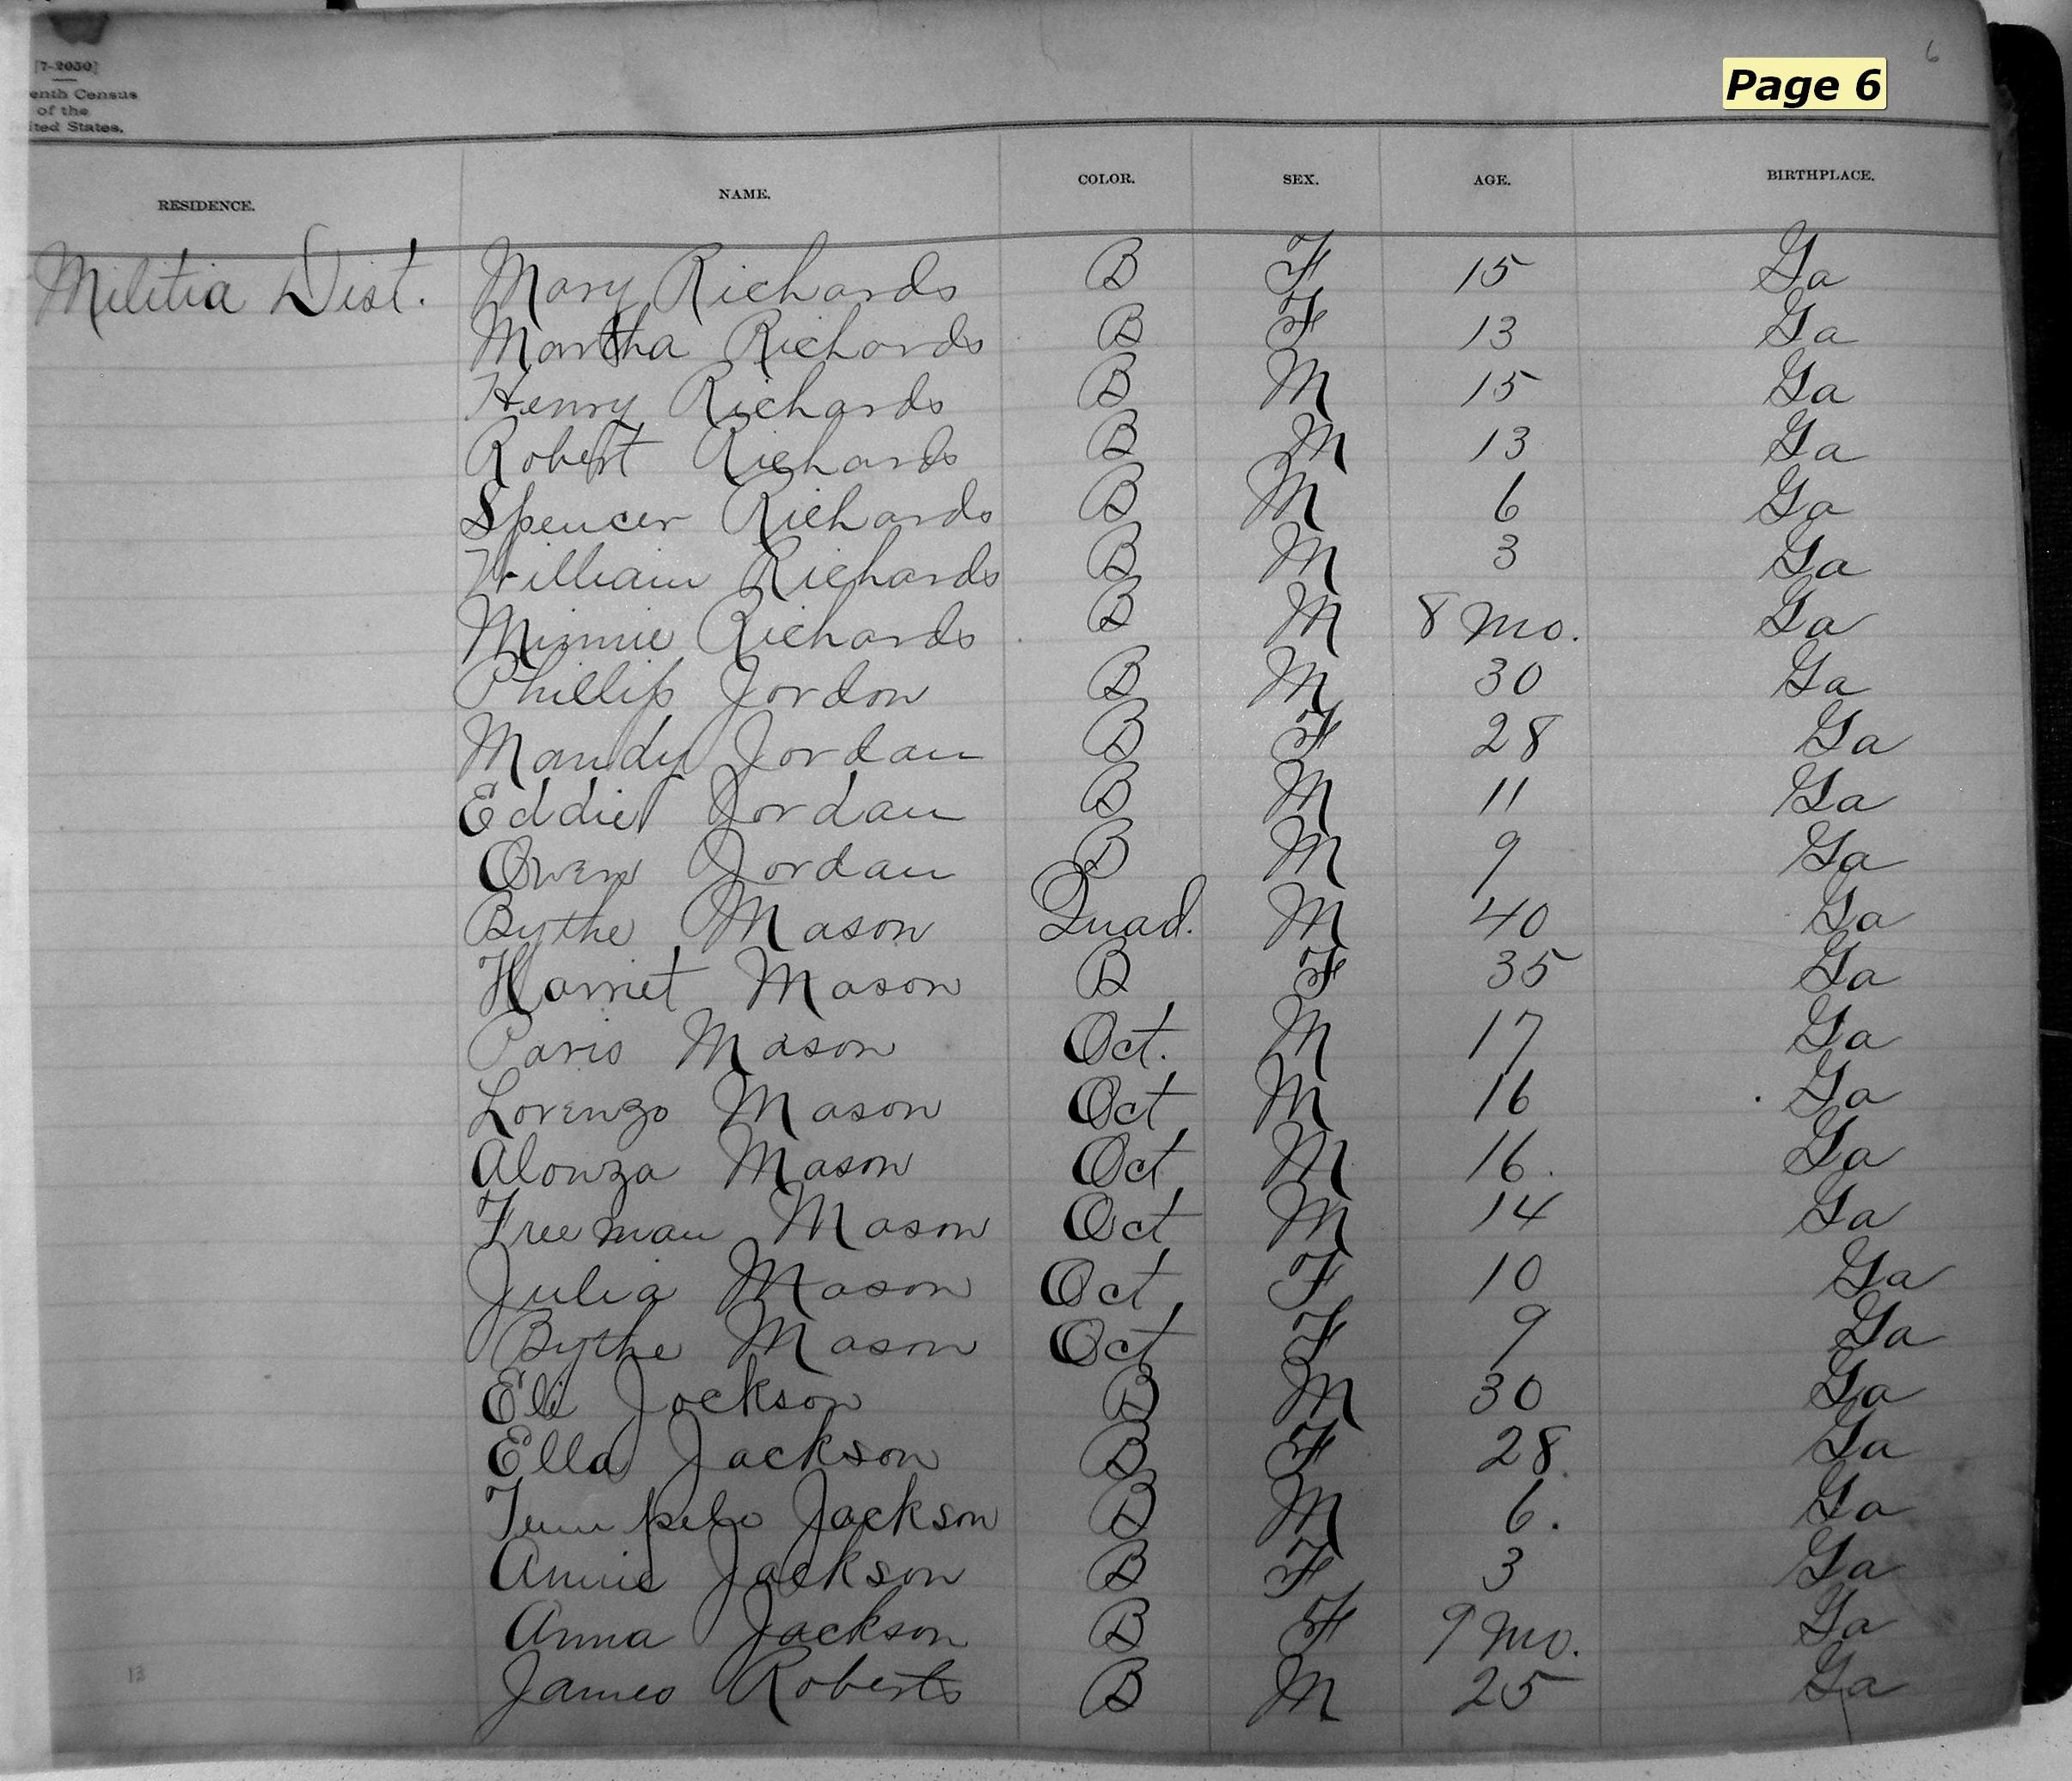 6
Page 6
[7-2050]
enth Census
of the
ited States.
RESIDENCE. NAME. COLOR. SEX. AGE. BIRTHPLACE.
Militia Dist. Mary Richards B F 15 Ga
Martha Richards B F 13 Ga
Henry Richards B M 15 Ga
Robert Richards B M 13 Ga
Spencer Richards B M 6 Ga
William Richards B M 3 Ga
Minnie Richards B M 8 mo. Ga
Phillip Jordon B M 30 Ga
Mandy Jordan B F 28 Ga
Eddie Jordan B M 11 Ga
Owen Jordan B M 9 Ga
Bythe Mason Quad. M 40 Ga
Harriet Mason B F 35 Ga
Paris Mason Oct. M 17 Ga
Lorenzo Mason Oct M 16 Ga
Alonza Mason Oct M 16. Ga
Freeman Mason Oct M 14 Ga
Julia Mason Oct F 10 Ga
Bythe Mason Oct F 9 Ga
Eli Jackson B M 30 Ga
Ella Jackson B F 28 Ga
Jackson B M 6. Ga
Annie Jackson B F 3 Ga
Anna Jackson B F 9 mo. Ga
James Roberts B M 25 Ga
13